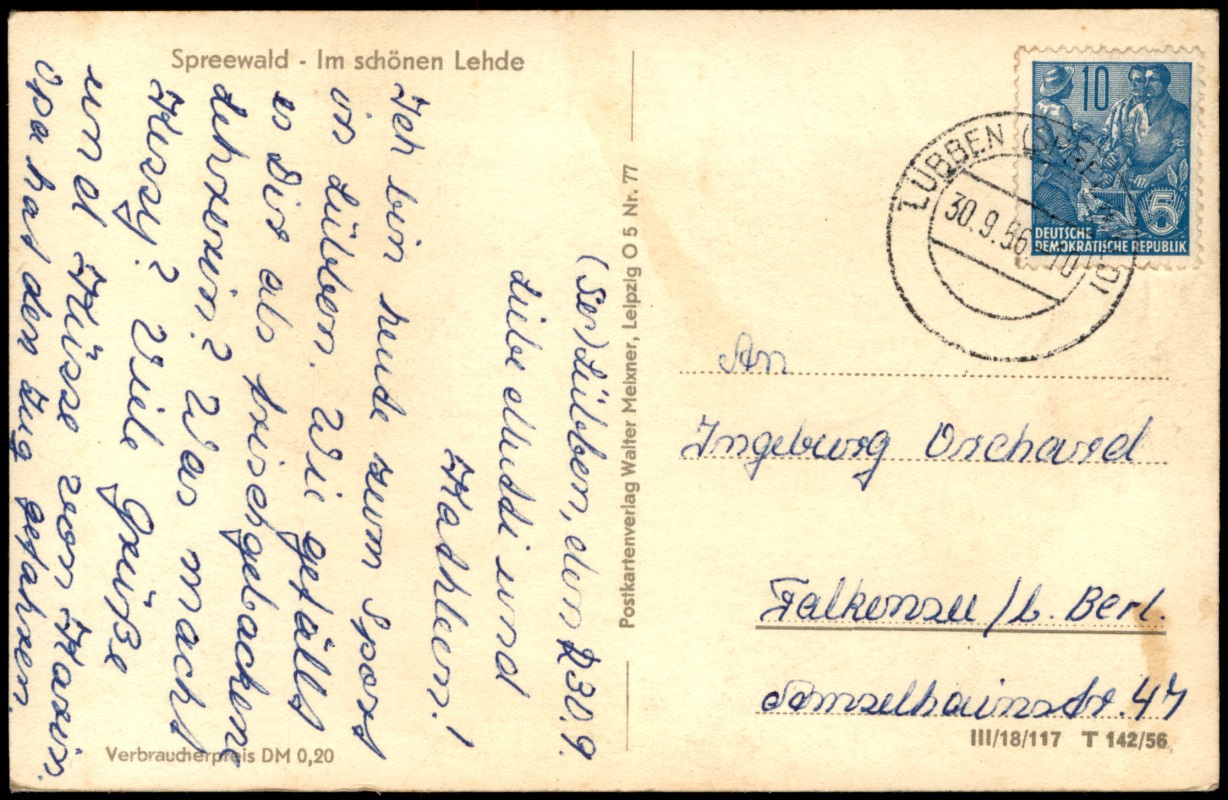 Spreewald - Im schönen Lehde
(Ser) Lübben, den 30.9.
Liebe Muddi und
Kathleen!
Ich bin heude zum Sport
in Lübben. Wie gefällt
es Dir als frischgebackene
Lehrerin? Was macht
Hussy? Viele Grüße
und Küsse von Karin.
Opa hat den Zug gefahren.
Verbraucherpreis DM 0,20
Postkartenverlag Walter Meixner, Leipzig O 5 Nr. 77
10
5
DEUTSCHE
DEMOKRATISCHE REPUBLIK
LÜBBEN (SPREEWALD)
30.9.56
An
Ingeburg Orschard
Falkensee / b. Berl.
Amselhainstr. 47
III/18/117 T 142/56